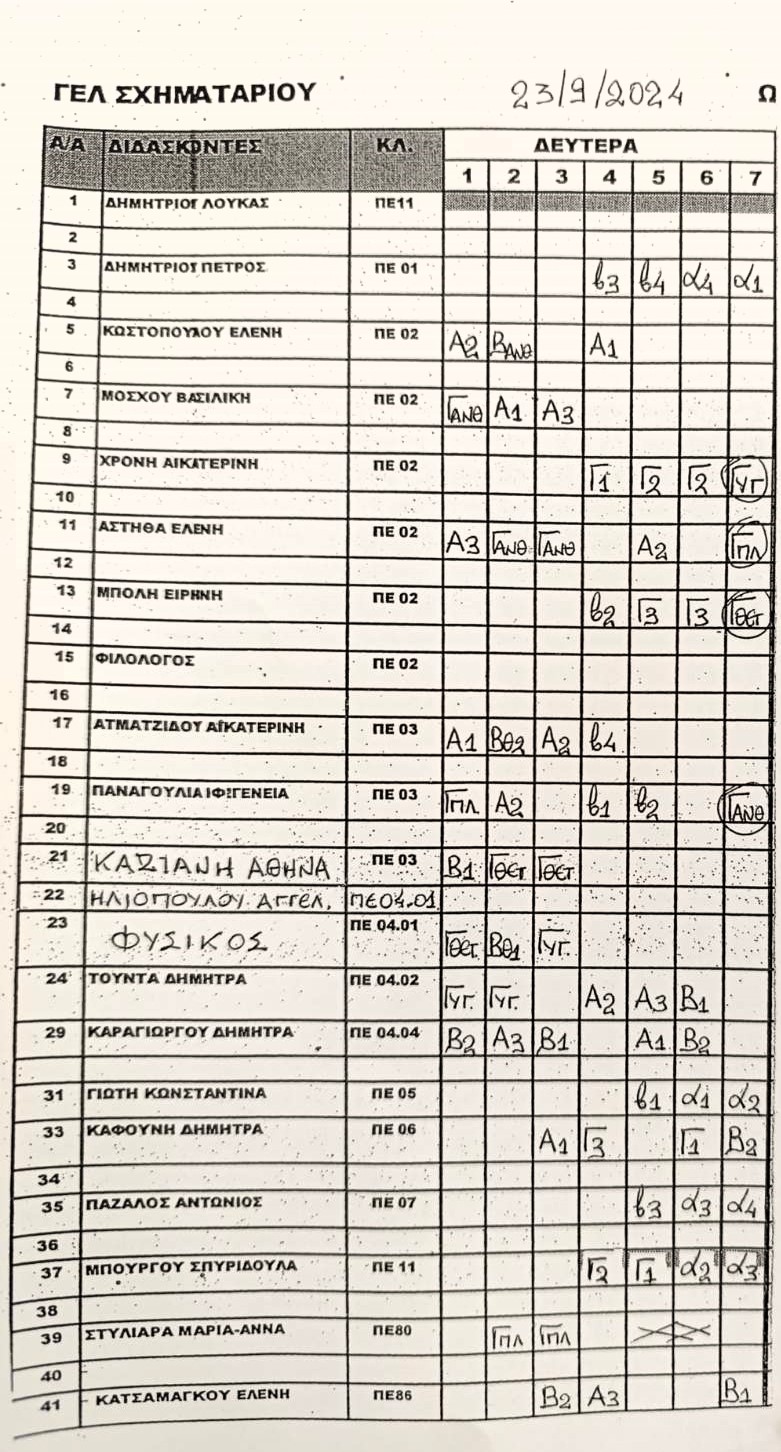 ΓΕΛ ΣΧΗΜΑΤΑΡΙΟΥ 23/9/2024 Ω
Α/Α ΔΙΔΑΣΚΟΝΤΕΣ ΚΛ. ΔΕΥΤΕΡΑ
1 2 3 4 5 6 7
1 ΔΗΜΗΤΡΙΟΥ ΛΟΥΚΑΣ ΠΕ11
2
3 ΔΗΜΗΤΡΙΟΥ ΠΕΤΡΟΣ ΠΕ 01 β3 β4 α4 α1
4
5 ΚΩΣΤΟΠΟΥΛΟΥ ΕΛΕΝΗ ΠΕ 02 Α2 ΒΑΝΘ Α1
6
7 ΜΟΣΧΟΥ ΒΑΣΙΛΙΚΗ ΠΕ 02 ΓΑΝΘ Α1 Α3
8
9 ΧΡΟΝΗ ΑΙΚΑΤΕΡΙΝΗ ΠΕ 02 Γ1 Γ2 Γ2 ΓΥΓ
10
11 ΑΣΤΗΘΑ ΕΛΕΝΗ ΠΕ 02 Α3 ΓΑΝΘ ΓΑΝΘ Α2 ΓΠΛ
12
13 ΜΠΟΛΗ ΕΙΡΗΝΗ ΠΕ 02 β2 Γ3 Γ3 ΓΘΕΤ
14
15 ΦΙΛΟΛΟΓΟΣ ΠΕ 02
16
17 ΑΤΜΑΤΖΙΔΟΥ ΑΙΚΑΤΕΡΙΝΗ ΠΕ 03 Α1 Βθ2 Α2 β4
18
19 ΠΑΝΑΓΟΥΛΙΑ ΙΦΙΓΕΝΕΙΑ ΠΕ 03 ΓΠΛ Α2 β1 β2 ΓΑΝΘ
20
21 ΚΑΣΙΑΝΗ ΑΘΗΝΑ ΠΕ 03 Β1 ΓΘΕΤ ΓΘΕΤ
22 ΗΛΙΟΠΟΥΛΟΥ ΑΓΓΕΛ. ΠΕ04.01
23 ΦΥΣΙΚΟΣ ΠΕ 04.01 ΓΘΕΤ Βθ1 ΓΥΓ.
24 ΤΟΥΝΤΑ ΔΗΜΗΤΡΑ ΠΕ 04.02 ΓΥΓ. ΓΥΓ. Α2 Α3 Β1
29 ΚΑΡΑΓΙΩΡΓΟΥ ΔΗΜΗΤΡΑ ΠΕ 04.04 Β2 Α3 Β1 Α1 Β2
31 ΓΙΩΤΗ ΚΩΝΣΤΑΝΤΙΝΑ ΠΕ 05 β1 α1 α2
33 ΚΑΦΟΥΝΗ ΔΗΜΗΤΡΑ ΠΕ 06 Α1 Γ3 Γ1 Β2
34
35 ΠΑΖΑΛΟΣ ΑΝΤΩΝΙΟΣ ΠΕ 07 β3 α3 α4
36
37 ΜΠΟΥΡΓΟΥ ΣΠΥΡΙΔΟΥΛΑ ΠΕ 11 Γ2 Γ1 α2 α3
38
39 ΣΤΥΛΙΑΡΑ ΜΑΡΙΑ-ΑΝΝΑ ΠΕ80 ΓΠΛ ΓΠΛ
40
41 ΚΑΤΣΑΜΑΓΚΟΥ ΕΛΕΝΗ ΠΕ86 Β2 Α3 Β1